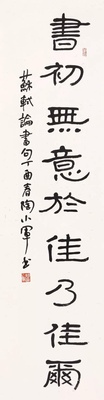 書初無意於佳乃佳爾
蘇軾論書句丁酉春陶小軍書